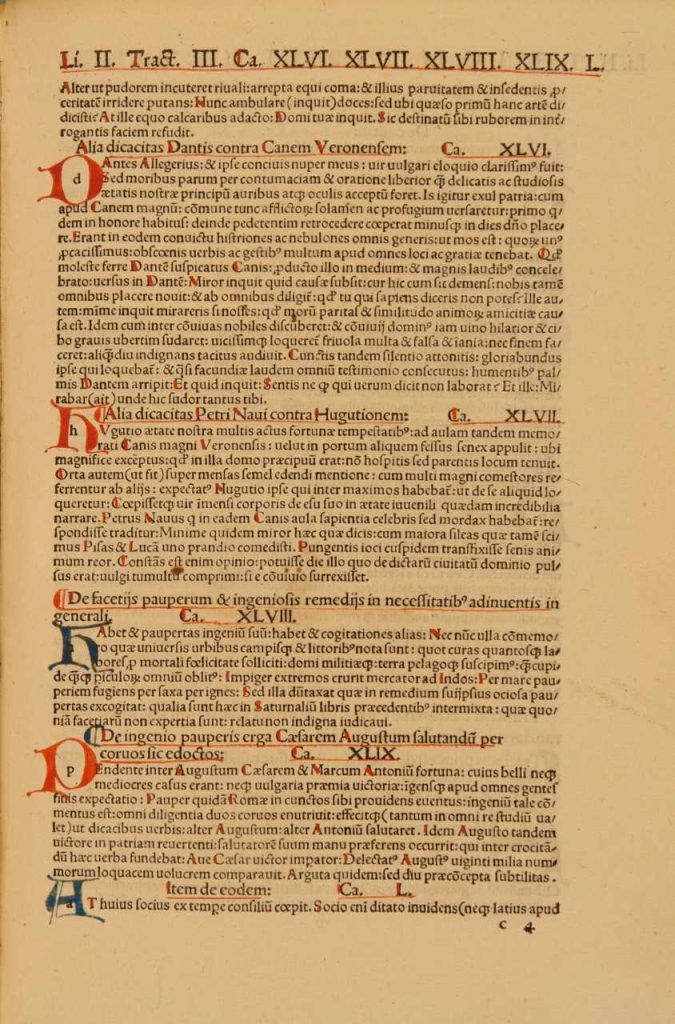 Li. II. Tract. III. Ca. XLVI. XLVII. XLVIII. XLIX. L.
Alter ut pudorem incuteret riuali: arrepta equi coma: & illius paruitatem & insedentis ꝓ/
ceritatē irridere putans: Nunc ambulare (inquit) doces: sed ubi quæso primū hanc artē di/
dicistis? At ille equo calcaribus adacto: Domi tuæ inquit. Sic destinatū sibi ruborem in int̄/
rogantis faciem refudit.
Alia dicacitas Dantis contra Canem Veronensem: Ca. XLVI.
d DAntes Allegerius: & ipse conciuis nuper meus: uir uulgari eloquio clarissimꝰ fuit:
Sed moribus parum per contumaciam & oratione liberior q̄ȝ delicatis ac studiosis
ætatis nostræ principū auribus atqȝ oculis acceptū foret. Is igitur exul patria: cum
apud Canem magnū: cōmune tunc afflictoꝝ solamen ac profugium uersaretur: primo q/
dem in honore habitus: deinde pedetentim retrocedere cœperat minusqȝ in dies dño place/
re. Erant in eodem conuictu histriones ac nebulones omnis generis: ut mos est: quoꝝ unꝰ
ꝓcacissimus: obscœnis uerbis ac gestibꝰ multum apud omnes loci ac gratiæ tenebat. Qđ
moleste ferre Dantē suspicatus Canis: ꝓducto illo in medium: & magnis laudibꝰ concele/
brato: uersus in Dantē: Miror inquit quid causæ subsit: cur hic cum sit demens: nobis tamē
omnibus placere nouit: & ab omnibus diligit̄: qđ tu qui sapiens diceris non potes? Ille au/
tem: minime inquit mirareris si nosses: qđ moꝝ paritas & similitudo animoꝝ amicitiæ cau/
sa est. Idem cum inter cōuiuas nobiles discuberet: & cōuiuij dominꝰ iam uino hilarior & ci/
bo grauis ubertim sudaret: uicissimqȝ loqueret̄ friuola multa & falsa & iania: nec finem fa/
ceret: aliqȝdiu indignans tacitus audiuit. Cunctis tandem silentio attonitis: gloriabundus
ipse qui loquebat̄: & q̄si facundiæ laudem omniū testimonio consecutus: humentibꝰ pal/
mis Dantem arripit: Et quid inquit: Sentis ne qȝ qui uerum dicit non laborat? Et ille: Mi/
rabar (ait) unde hic sudor tantus tibi.
Alia dicacitas Petri Naui contra Hugutionem: Ca. XLVII.
h HVgutio ætate nostra multis actus fortunæ tempestatibꝰ: ad aulam tandem memo/
rati Canis magni Veronensis: uelut in portum aliquem fessus senex appulit: ubi
magnifice exceptus: qđ in illa domo præcipuū erat: nō hospitis sed parentis locum tenuit.
Orta autem (ut fit) super mensas semel edendi mentione: cum multi magni comestores re/
ferrentur ab alijs: expectatꝰ Nugutio ipse qui inter maximos habebat̄: ut de se aliquid lo/
queretur: Cœpissetqȝ uir īmensi corporis de esu suo in ætate iuuenili quædam incredibilia
narrare. Petrus Nauus q in eadem Canis aula sapientia celebris sed mordax habebat̄: re/
spondisse traditur: Minime quidem miror hæc quæ dicis: cum maiora sileas quæ tamē sci/
mus Pisas & Lucā uno prandio comedisti. Pungentis ioci cuspidem transfixisse senis ani/
mum reor. Constās est enim opinio: potuisse die illo quo de dictarū ciuitatū dominio pul/
sus erat: uulgi tumultꝰ comprimi: si e cōuiuio surrexisset.
De facetijs pauperum & ingeniosis remedijs in necessitatibꝰ adinuentis in
generali. Ca. XLVIII.
HAbet & paupertas ingeniū suū: habet & cogitationes alias: Nec nūc ulla cōmemo/
ro quæ uniuersis urbibus campisqȝ & littoribꝰ nota sunt: quot curas quantosqȝ la/
bores, ꝓ mortali fœlicitate solliciti: domi militiæqȝ: terra pelagoqȝ suscipimꝰ: q̄ȝ cupi/
de q̄ȝqȝ piculoꝝ omniū obliti: Impiger extremos crurit mercator ad Indos: Per mare pau/
periem fugiens per saxa per ignes: Sed illa dūtaxat quæ in remedium suijpsius ociosa pau/
pertas excogitat: qualia sunt hæc in Saturnaliū libris præcedentibꝰ intermixta: quæ quo/
niā facetiarū non expertia sunt: relatu non indigna iudicaui.
De ingenio pauperis erga Cæsarem Augustum salutandū per
coruos sic edoctos: Ca. XLIX.
p PEndente inter Augustum Cæsarem & Marcum Antoniū fortuna: cuius belli neqȝ
mediocres casus erant: neqȝ uulgaria præmia uictoriæ: īgensqȝ apud omnes gentes
finis expectatio: Pauper quidā Romæ in cunctos sibi prouidens euentus: ingeniū tale cō/
mentus est: omni diligentia duos coruos enutriuit: effecitqȝ (tantum in omni re studiū ua/
let) ut dicacibus uerbis: alter Augustum: alter Antoniū salutaret. Idem Augusto tandem
uictore in patriam reuertenti: salutatorē suum manu præferens occurrit: qui inter crocitā/
dū hæc uerba fundebat: Aue Cæsar uictor impator: Delectatꝰ Augustꝰ uiginti milia num/
morum loquacem uolucrem comparauit. Arguta quidem: sed diu præcōcepta subtilitas.
Item de eodem: Ca. L.
a AT huius socius ex tempe consiliū cœpit. Socio enī ditato inuidens (neqȝ latius apud
c 4